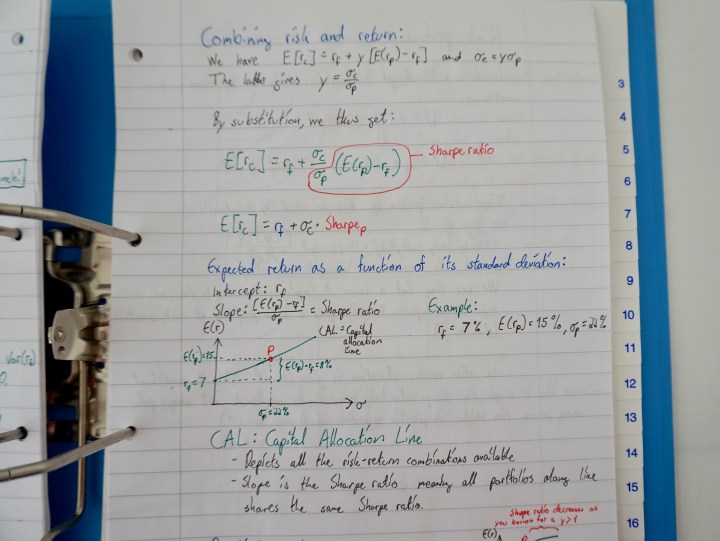 Combining risk and return:
We have E[r_c] = r_f + y [E(r_p) - r_f] and σ_c = yσ_p
The latter gives y = σ_c/σ_p
By substitution, we thus get:
E[r_c] = r_f + σ_c/σ_p (E(r_p) - r_f)
Sharpe ratio
E[r_c] = r_f + σ_c · Sharpe_p
Expected return as a function of its standard deviation:
Intercept: r_f
Slope: [E(r_p) - r_f]/σ_p = Sharpe ratio
Example:
r_f = 7%, E(r_p) = 15%, σ_p = 22%
E(r)
CAL = Capital
allocation
line
P
E(r_p)=15
E(r_p)-r_f = 8%
r_f = 7
σ_p = 22%
σ
CAL: Capital Allocation Line
- Depicts all the risk-return combinations available
- Slope is the Sharpe ratio meaning all portfolios along line
shares the same Sharpe ratio.
Sharpe ratio decreases as
you borrow for a y>1
E(r)
P
3
4
5
6
7
8
9
10
11
12
13
14
15
16